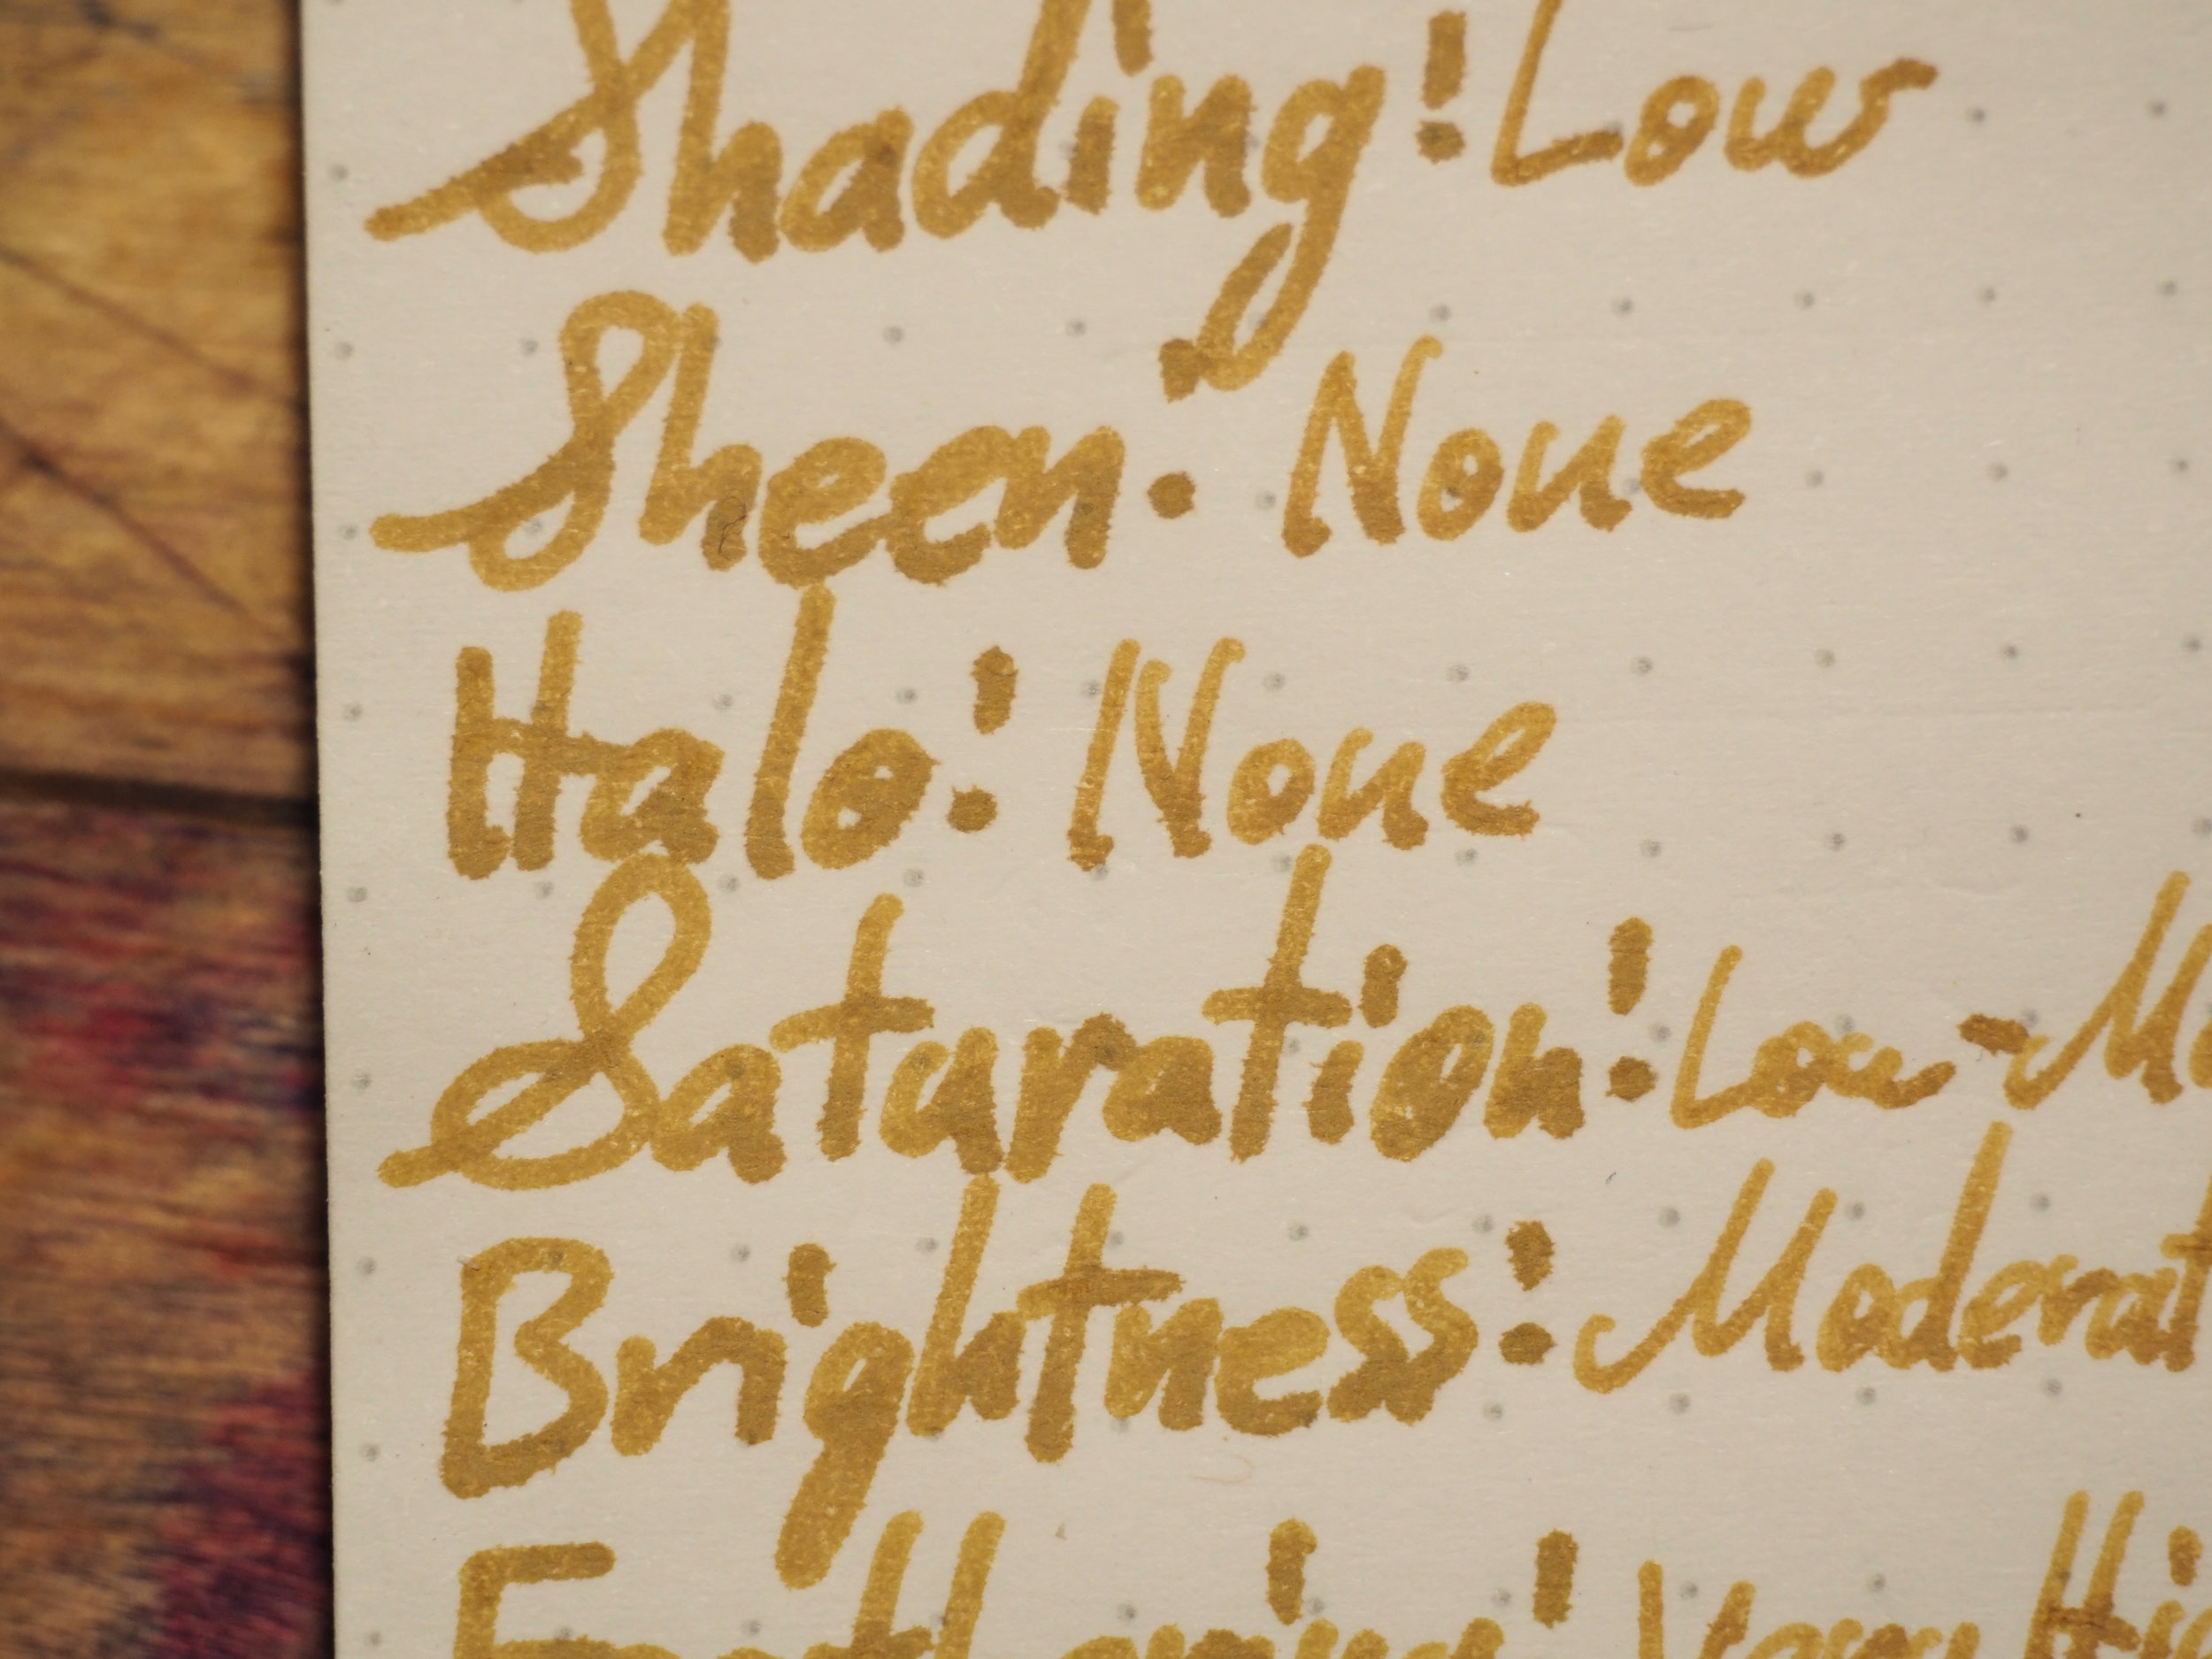 Shading: Low
Sheen: None
Halo: None
Saturation: Low-Mo
Brightness: Moderat
Feathering: Very Hi